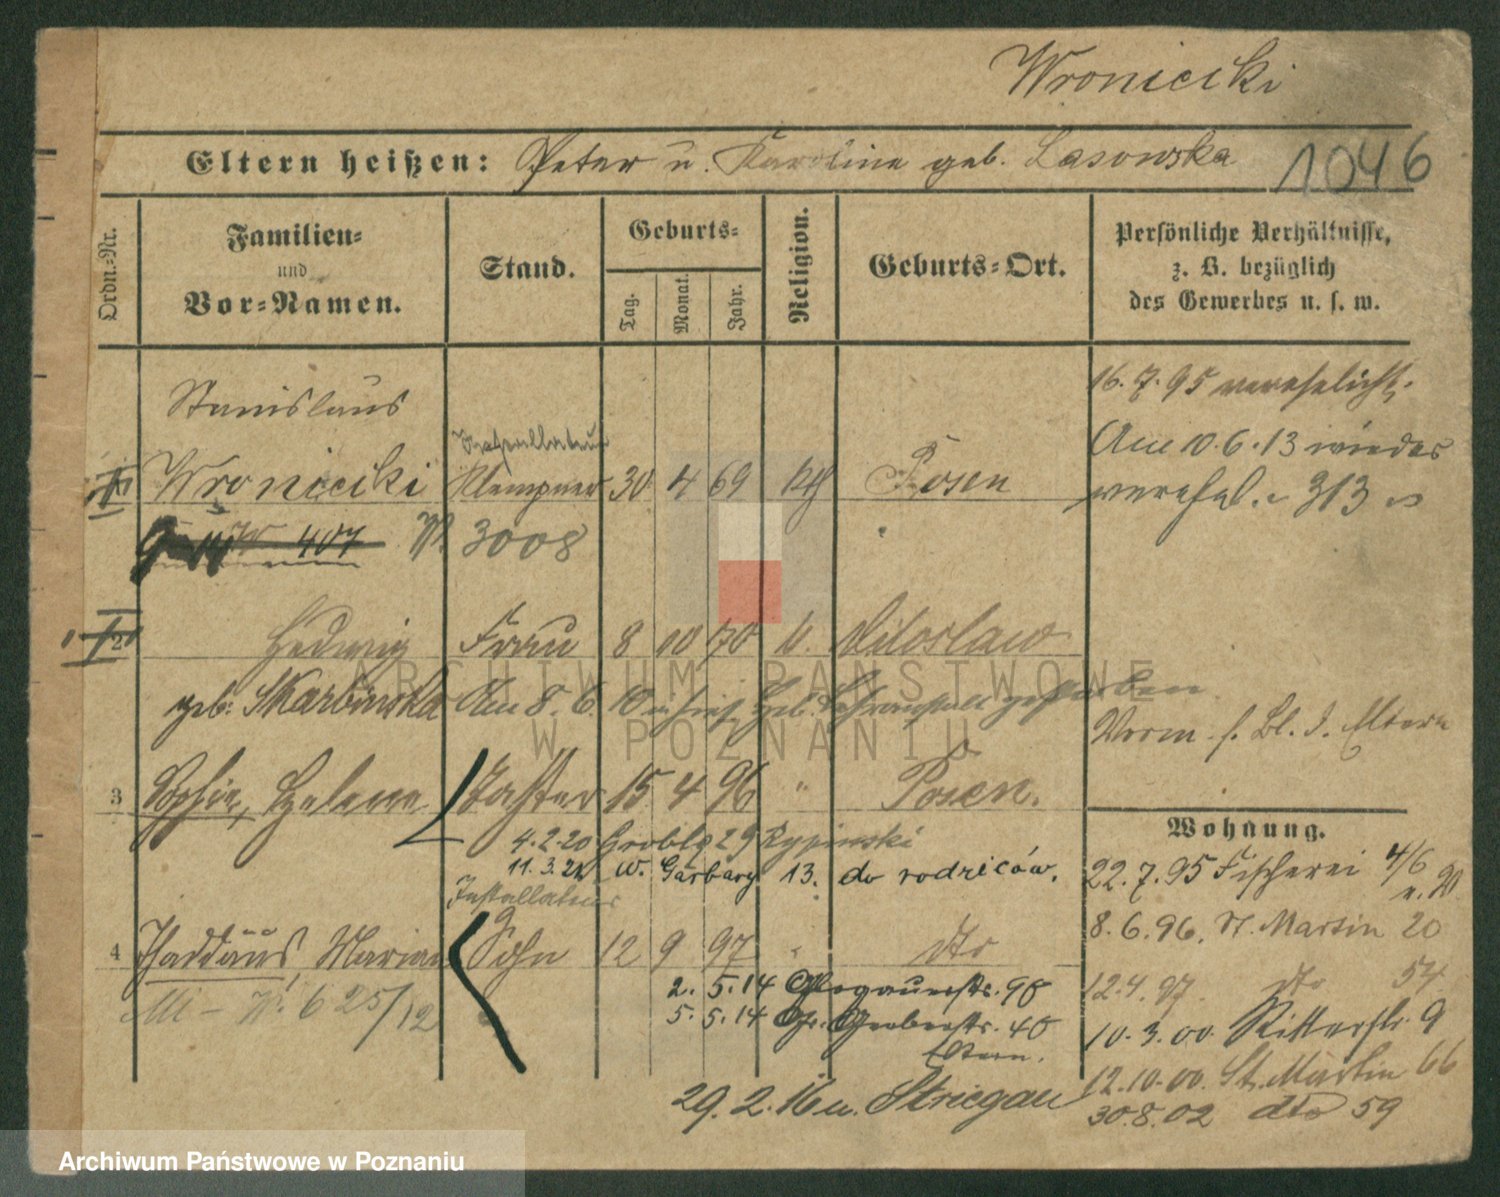 Wroniecki
Eltern heißen: Peter u. Karoline geb. Lasowska 1046
Ordn.-Nr.
Familien-
und
Vor-Namen.
Stand.
Geburts-
Tag.
Monat.
Jahr.
Religion.
Geburts-Ort.
Persönliche Verhältnisse,
z. B. bezüglich
des Gewerbes u. s. w.
16.7.95 verehelicht.
Stanislaus
Installateur
Am 10.6.13 wieder
Wroniecki Klempner 30 4 69 kth Posen
verehel. 313
407 3008
2 Hedwig Frau 8 10 70 k. Miloslaw
geb. Skarbinska Am 8.6.10 geb. gestorben
Vorm. s. Bl. d. Eltern
3 Sophie, Helene Tochter 15 4 96 " Posen.
4.2.20 Grobla 29 Rypinski
11.3.21 w. Garbary 13. do rodziców.
Installateur
4 Thaddäus, Marian Sohn 12 9 97 " dto
625/12
2.5.14 Glogauerstr. 98
5.5.14 Gr. Gerberstr. 40
Eltern.
29.2.16 u. Striegau
Wohnung.
22.7.95 Fischerei 4/6
8.6.96. St. Martin 20
12.4.97. dto 54
10.3.00. Ritterstr. 9
12.10.00. St. Martin 66
30.8.02 dto 59
ARCHIWUM PAŃSTWOWE
W POZNANIU
Archiwum Państwowe w Poznaniu